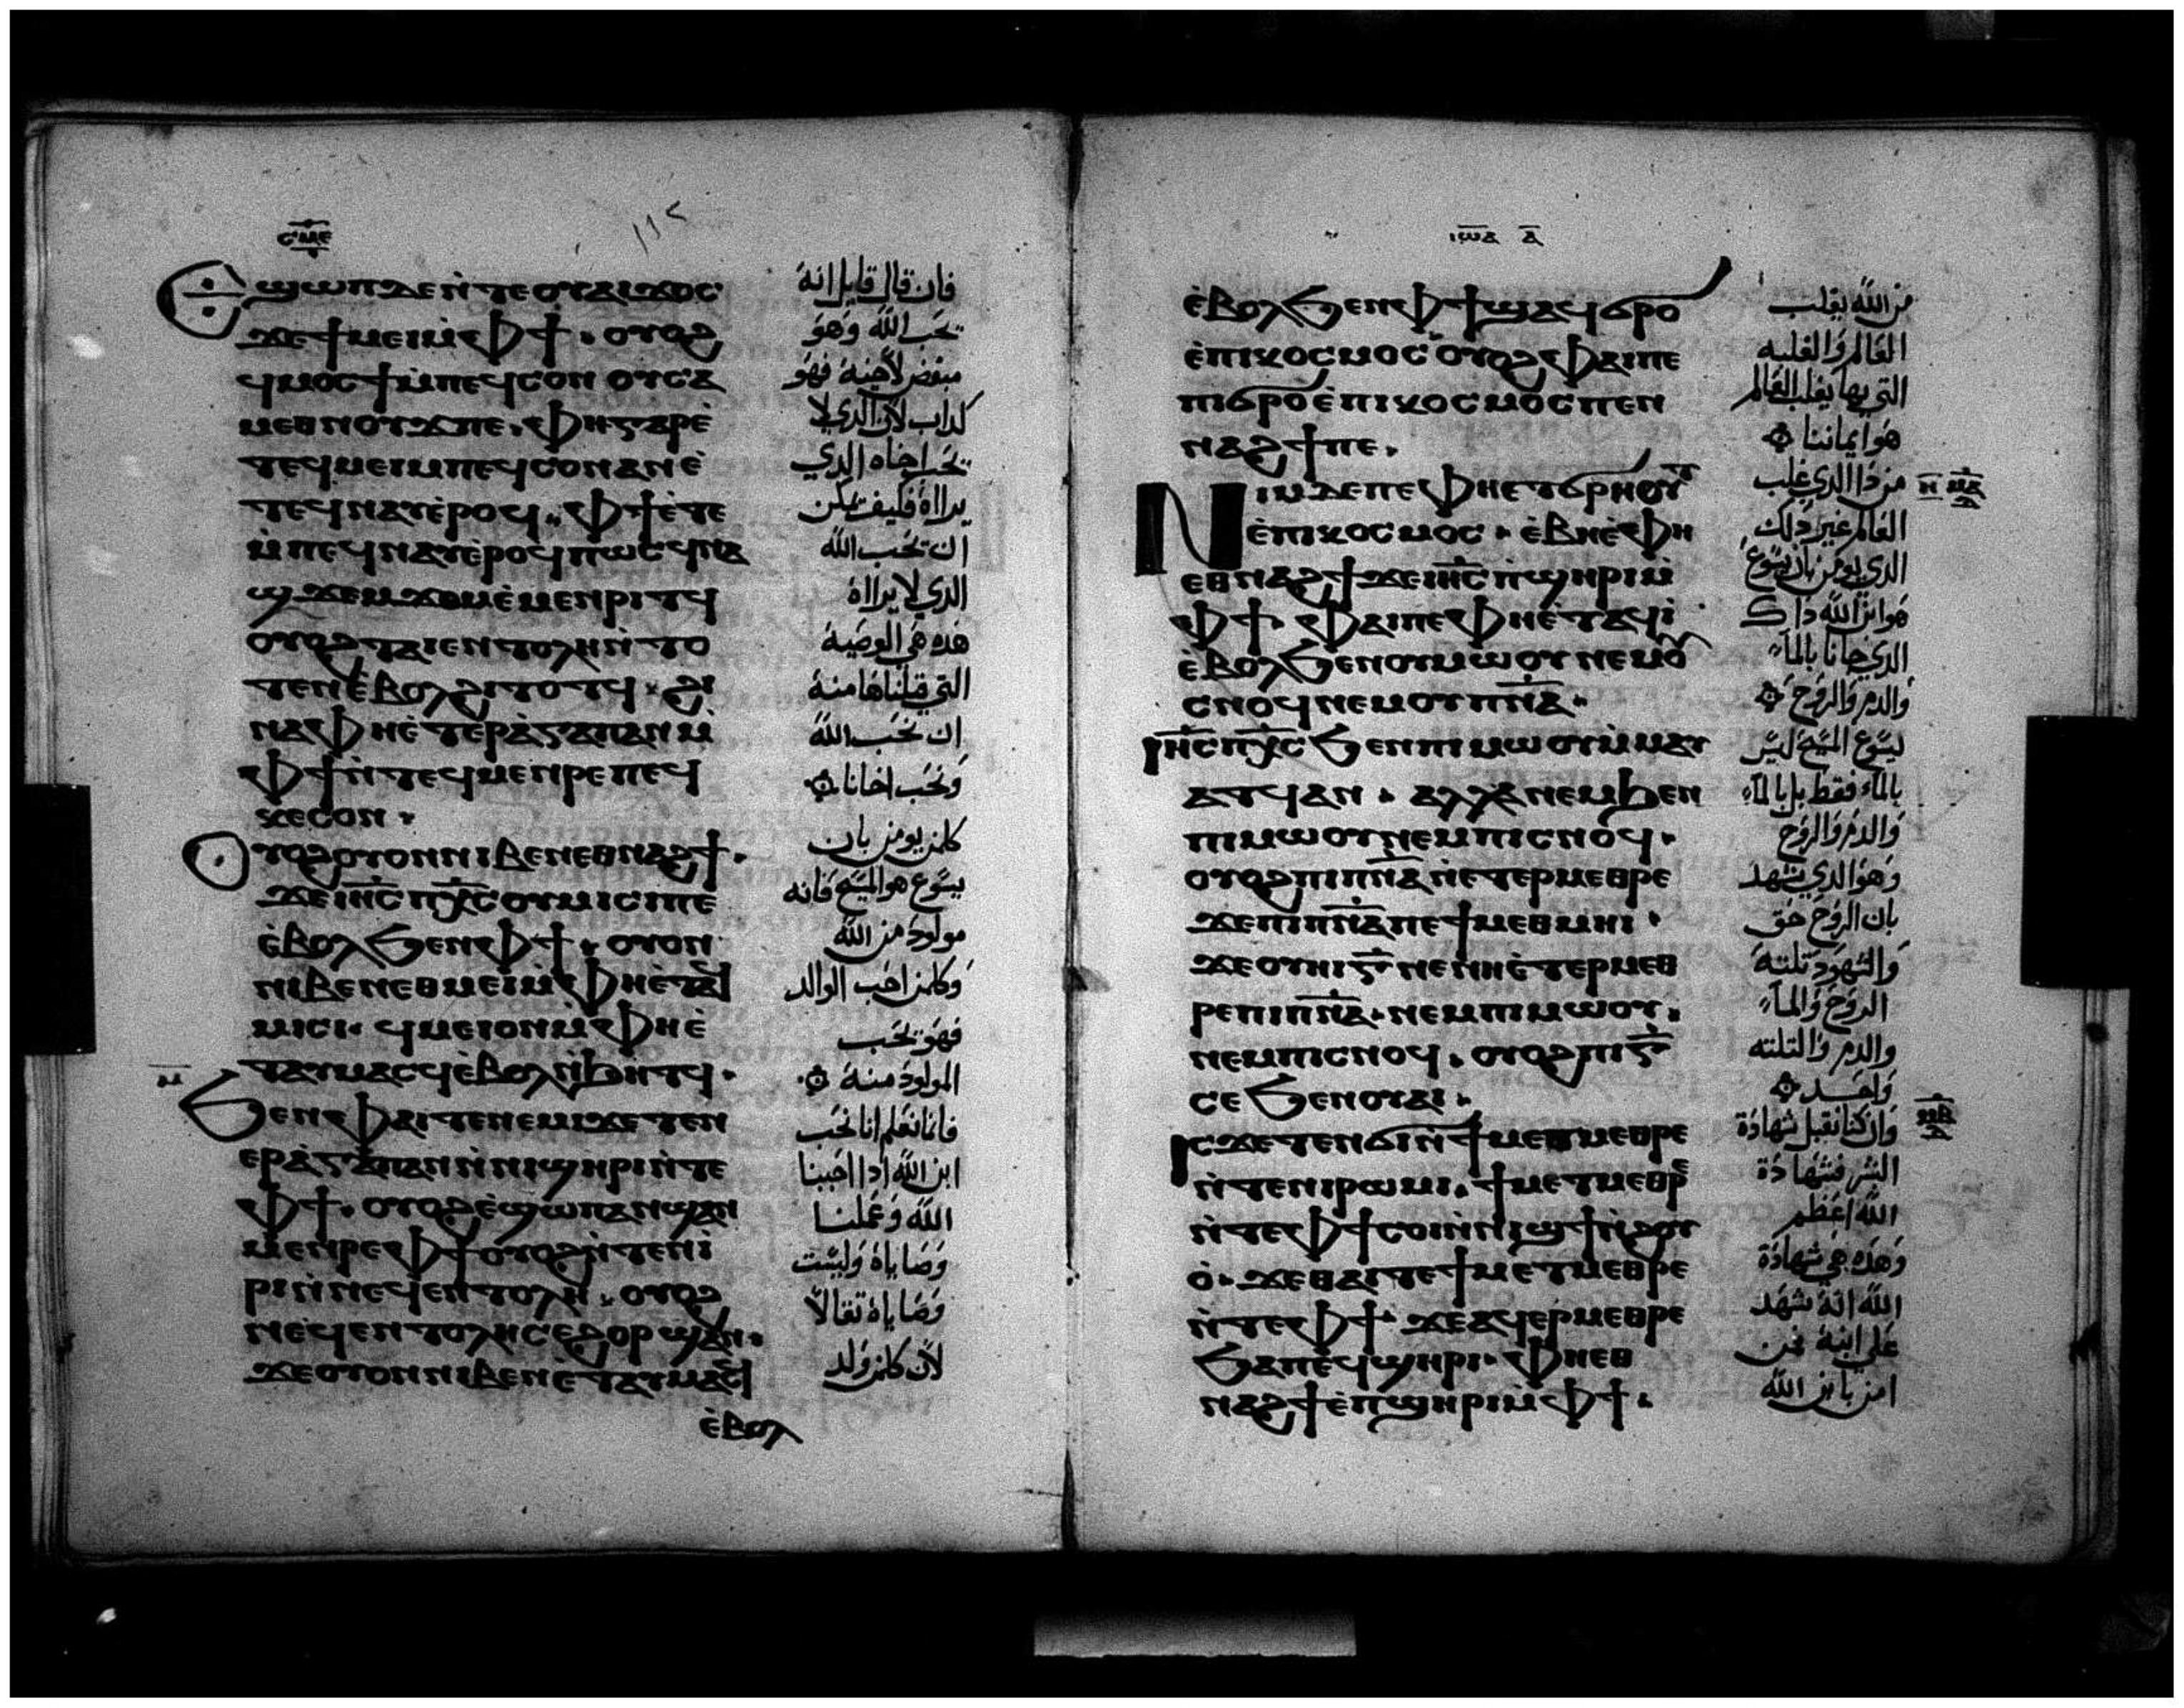 ⲥⲙⲉ
ϣⲱⲡ ⲇⲉ ⲛ̀ⲧⲉ ⲟⲩⲁⲓ ϫⲟⲥ
ϫⲉ ϯⲙⲉⲓ ⲙ̀ⲫϯ · ⲟⲩⲟϩ
ϥⲙⲟⲥϯ ⲙ̀ⲡⲉϥⲥⲟⲛ ⲟⲩⲥⲁ
ⲙⲉⲑⲛⲟⲩϫ ⲡⲉ · ⲫⲏ ⲅⲁⲣ ⲉ̀
ⲧⲉϥⲙⲉⲓ ⲙⲡⲉϥⲥⲟⲛ ⲁⲛ ⲉ̀
ⲧⲉϥⲛⲁⲩ ⲉ̀ⲣⲟϥ · ⲫϯ ⲉ̀ⲧⲉ
ⲙ̀ⲡⲉϥⲛⲁⲩ ⲉ̀ⲣⲟϥ ⲡⲱⲥ ϥⲛⲁ
ϣϫⲉⲙϫⲟⲙ ⲉ̀ⲙⲉⲛⲣⲓⲧϥ
ⲟⲩⲟϩ ⲧⲁⲓⲉⲛⲧⲟⲗⲏ ⲛ̀ⲧⲟ
ⲧⲉⲛ ⲉ̀ⲃⲟⲗ ϩⲓⲧⲟⲧϥ · ϩⲓ
ⲛⲁ ⲫⲏ ⲉ̀ⲧⲉⲣⲁ̀ⲅⲁⲡⲁⲛ ⲙ̀
ⲫϯ ⲛ̀ⲧⲉϥⲙⲉⲛⲣⲉ ⲡⲉϥ
ⲕⲉⲥⲟⲛ ·
ⲟⲩⲟϩ ⲟⲩⲟⲛ ⲛⲓⲃⲉⲛ ⲉⲑⲛⲁϩϯ ·
ϫⲉ ⲓⲏ̅ⲥ̅ ⲡⲭ̅ⲥ̅ ⲟⲩⲙⲓⲥⲓ ⲡⲉ
ⲉ̀ⲃⲟⲗ ϧⲉⲛ ⲫϯ · ⲟⲩⲟⲛ
ⲛⲓⲃⲉⲛ ⲉⲑⲙⲉⲓ ⲙ̀ⲫⲏ ⲉ̀ⲧⲁϥ
ⲙⲓⲥⲓ · ϥⲙⲉⲓ ⲟⲛ ⲙ̀ⲫⲏ ⲉ̀
ⲧⲁⲩⲙⲁⲥϥ ⲉ̀ⲃⲟⲗ ⲛ̀ϧⲏⲧϥ ·
ϧⲉⲛ ⲫⲁⲓ ⲧⲉⲛⲉⲙⲓ ϫⲉ ⲧⲉⲛ
ⲉⲣⲁ̀ⲅⲁⲡⲁⲛ ⲛ̀ⲛⲓϣⲏⲣⲓ ⲛ̀ⲧⲉ
ⲫϯ · ⲟⲩⲟϩ ⲉ̀ϣⲱⲡ ⲁⲛϣⲁⲛ
ⲙⲉⲛⲣⲉ ⲫϯ ⲟⲩⲟϩ ⲛ̀ⲧⲉⲛⲓ
ⲣⲓ ⲛ̀ⲛⲉϥⲉⲛⲧⲟⲗⲏ · ⲟⲩⲟϩ
ⲛⲉϥⲉⲛⲧⲟⲗⲏ ⲥⲉϩⲟⲣϣ ⲁⲛ ·
ϫⲉ ⲟⲩⲟⲛ ⲛⲓⲃⲉⲛ ⲉ̀ⲧⲁⲩⲙⲁⲥϥ
ⲉ̀ⲃⲟⲗ
فان قال قايل انه
يحب الله وهو
مبغض لاخيه فهو
كداب لان الدي لا
يحب اخاه الدي
يرااه فكيف يمكن
ان يحب الله
الدي لا يرااه
هده هي الوصية
التي قبلناها منه
ان نحب الله
ونحب اخانا
كلمن يومن بان
يسوع هو المسيح فانه
مولود من الله
وكلمن احب الوالد
فهو يحب
المولود منه
فانما نعلم انا نحب
ابن الله ادا احببنا
الله وعملنا
وصاياه وليست
وصاياه تقالا
لان كلمن ولد
ⲓⲱⲁ ⲁ̅
ⲉ̀ⲃⲟⲗ ϧⲉⲛ ⲫϯ ϣⲁϥϭⲣⲟ
ⲉ̀ⲡⲓⲕⲟⲥⲙⲟⲥ ⲟⲩⲟϩ ⲫⲁⲓ ⲡⲉ
ⲡⲓϭⲣⲟ ⲉ̀ⲡⲓⲕⲟⲥⲙⲟⲥ ⲡⲉⲛ
ⲛⲁϩϯ ⲡⲉ ·
ⲛⲓⲙ ⲇⲉ ⲡⲉ ⲫⲏ ⲉⲧϭⲣⲏⲟⲩⲧ
ⲉ̀ⲡⲓⲕⲟⲥⲙⲟⲥ · ⲉ̀ⲃⲏⲗ ⲉ̀ⲫⲏ
ⲉⲑⲛⲁϩϯ ϫⲉ ⲓⲏ̅ⲥ̅ ⲡ̀ϣⲏⲣⲓ ⲙ̀
ⲫϯ · ⲫⲁⲓ ⲡⲉ ⲫⲏ ⲉ̀ⲧⲁϥⲓ̀
ⲉ̀ⲃⲟⲗ ϧⲉⲛ ⲟⲩⲙⲱⲟⲩ ⲛⲉⲙ ⲟⲩ
ⲥⲛⲟϥ ⲛⲉⲙ ⲟⲩⲡ̅ⲛ̅ⲁ̅ ·
ⲓⲏ̅ⲥ̅ ⲡⲭ̅ⲥ̅ ϧⲉⲛ ⲡⲓⲙⲱⲟⲩ ⲙ̀ⲙⲁⲩ
ⲁⲧϥ ⲁⲛ · ⲁⲗⲗⲁ ⲛⲉⲙ ϧⲉⲛ
ⲡⲓⲙⲱⲟⲩ ⲛⲉⲙ ⲡⲓⲥⲛⲟϥ ·
ⲟⲩⲟϩ ⲡⲓⲡ̅ⲛ̅ⲁ̅ ⲡⲉⲧⲉⲣⲙⲉⲑⲣⲉ
ϫⲉ ⲡⲓⲡ̅ⲛ̅ⲁ̅ ⲡⲉ ϯⲙⲉⲑⲙⲏⲓ ·
ϫⲉ ⲟⲩⲏⲓ ⲅ̅ ⲛⲉ ⲛⲏ ⲉ̀ⲧⲉⲣⲙⲉⲑ
ⲣⲉ ⲡⲓⲡ̅ⲛ̅ⲁ̅ · ⲛⲉⲙ ⲡⲓⲙⲱⲟⲩ ·
ⲛⲉⲙ ⲡⲓⲥⲛⲟϥ · ⲟⲩⲟϩ ⲡⲓⲅ̅
ⲥⲉ ϧⲉⲛ ⲟⲩⲁⲓ ·
ⲓⲥϫⲉ ⲧⲉⲛϭⲓ ⲛ̀ϯⲙⲉⲧⲙⲉⲑⲣⲉ
ⲛ̀ⲧⲉ ⲛⲓⲣⲱⲙⲓ · ϯⲙⲉⲧⲙⲉⲑⲣⲉ
ⲛ̀ⲧⲉ ⲫϯ ⲥⲟⲓ ⲛ̀ⲛⲓϣϯ ⲛ̀ϩⲟⲩ
ⲟ̀ · ϫⲉ ⲑⲁⲓ ⲧⲉ ϯⲙⲉⲧⲙⲉⲑⲣⲉ
ⲛ̀ⲧⲉ ⲫϯ · ϫⲉ ⲁϥⲉⲣⲙⲉⲑⲣⲉ
ϧⲁ ⲡⲉϥϣⲏⲣⲓ · ⲫⲏ ⲉⲑ
ⲛⲁϩϯ ⲉ̀ⲡϣⲏⲣⲓ ⲙ̀ⲫϯ ·
من الله يغلب
العالم والغلبه
التي بها يغلب العالم
هو ايماننا
من دا الدي غلب
العالم غير دلك
الدي يومن بان يسوع
هو ابن الله داك
الدي جانا بالماء
والدم والروح
يسوع المسيح ليس
بالماء فقط بل بالماء
والدم والروح
وهو الدي يشهد
بان الروح حق
والشهود تلته
الروح والماء
والدم والتلته
واحد
وان كنا نقبل شهادة
البشر فشهادة
الله اعظم
وهده هي شهادة
الله انه شهد
على ابنه فمن
امن بابن الله